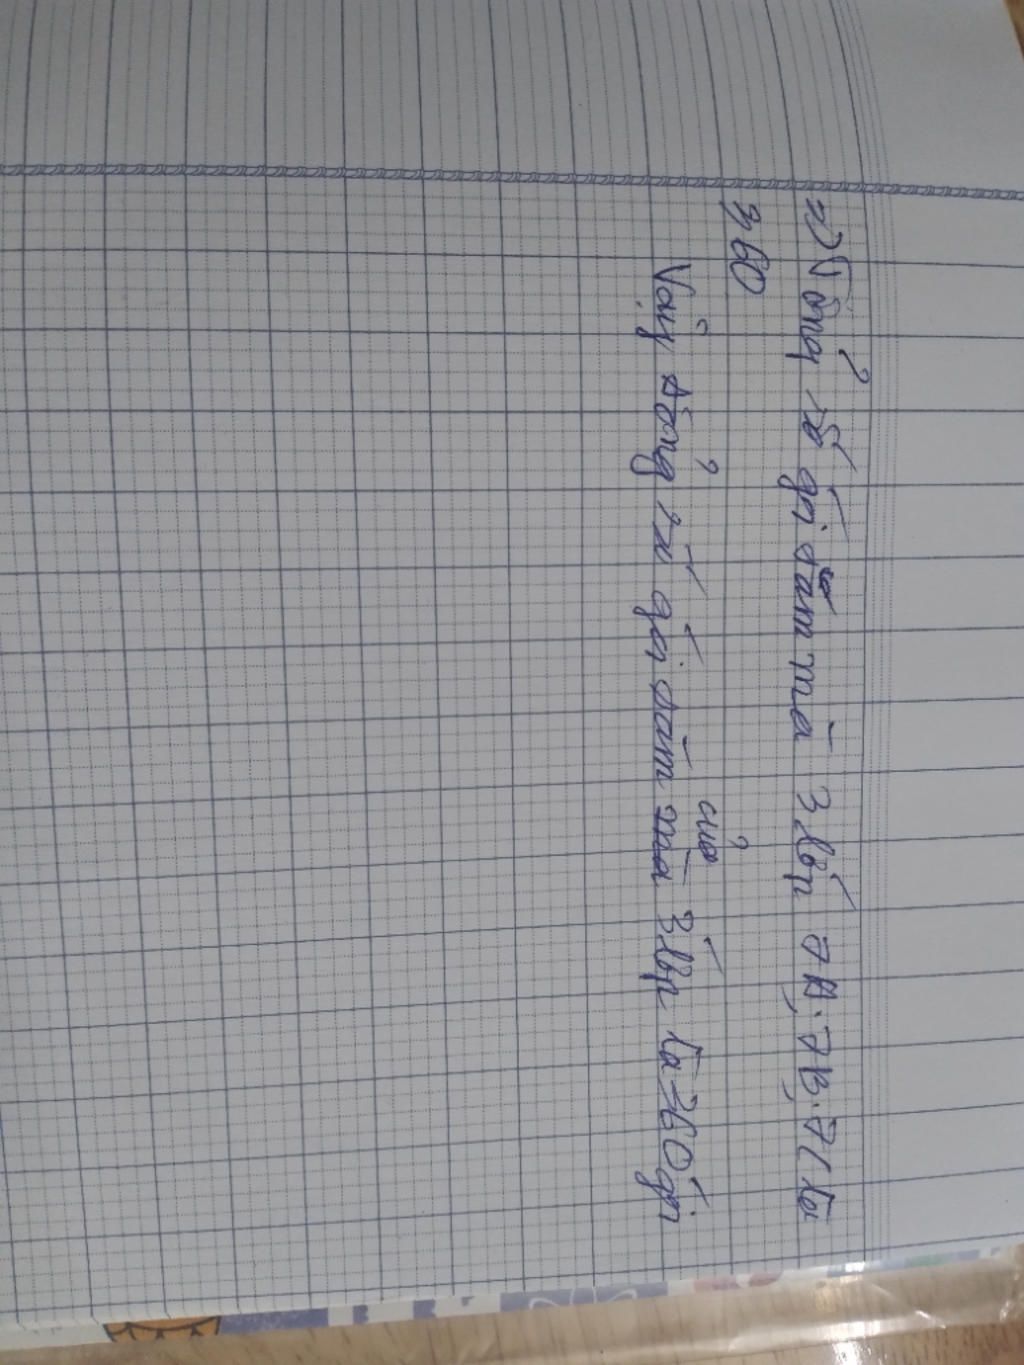 => Tổng số gói tăm mà 3 lớp 7A, 7B, 7C là
360
Vậy tổng số gói tăm của 3 lớp là 360 gói